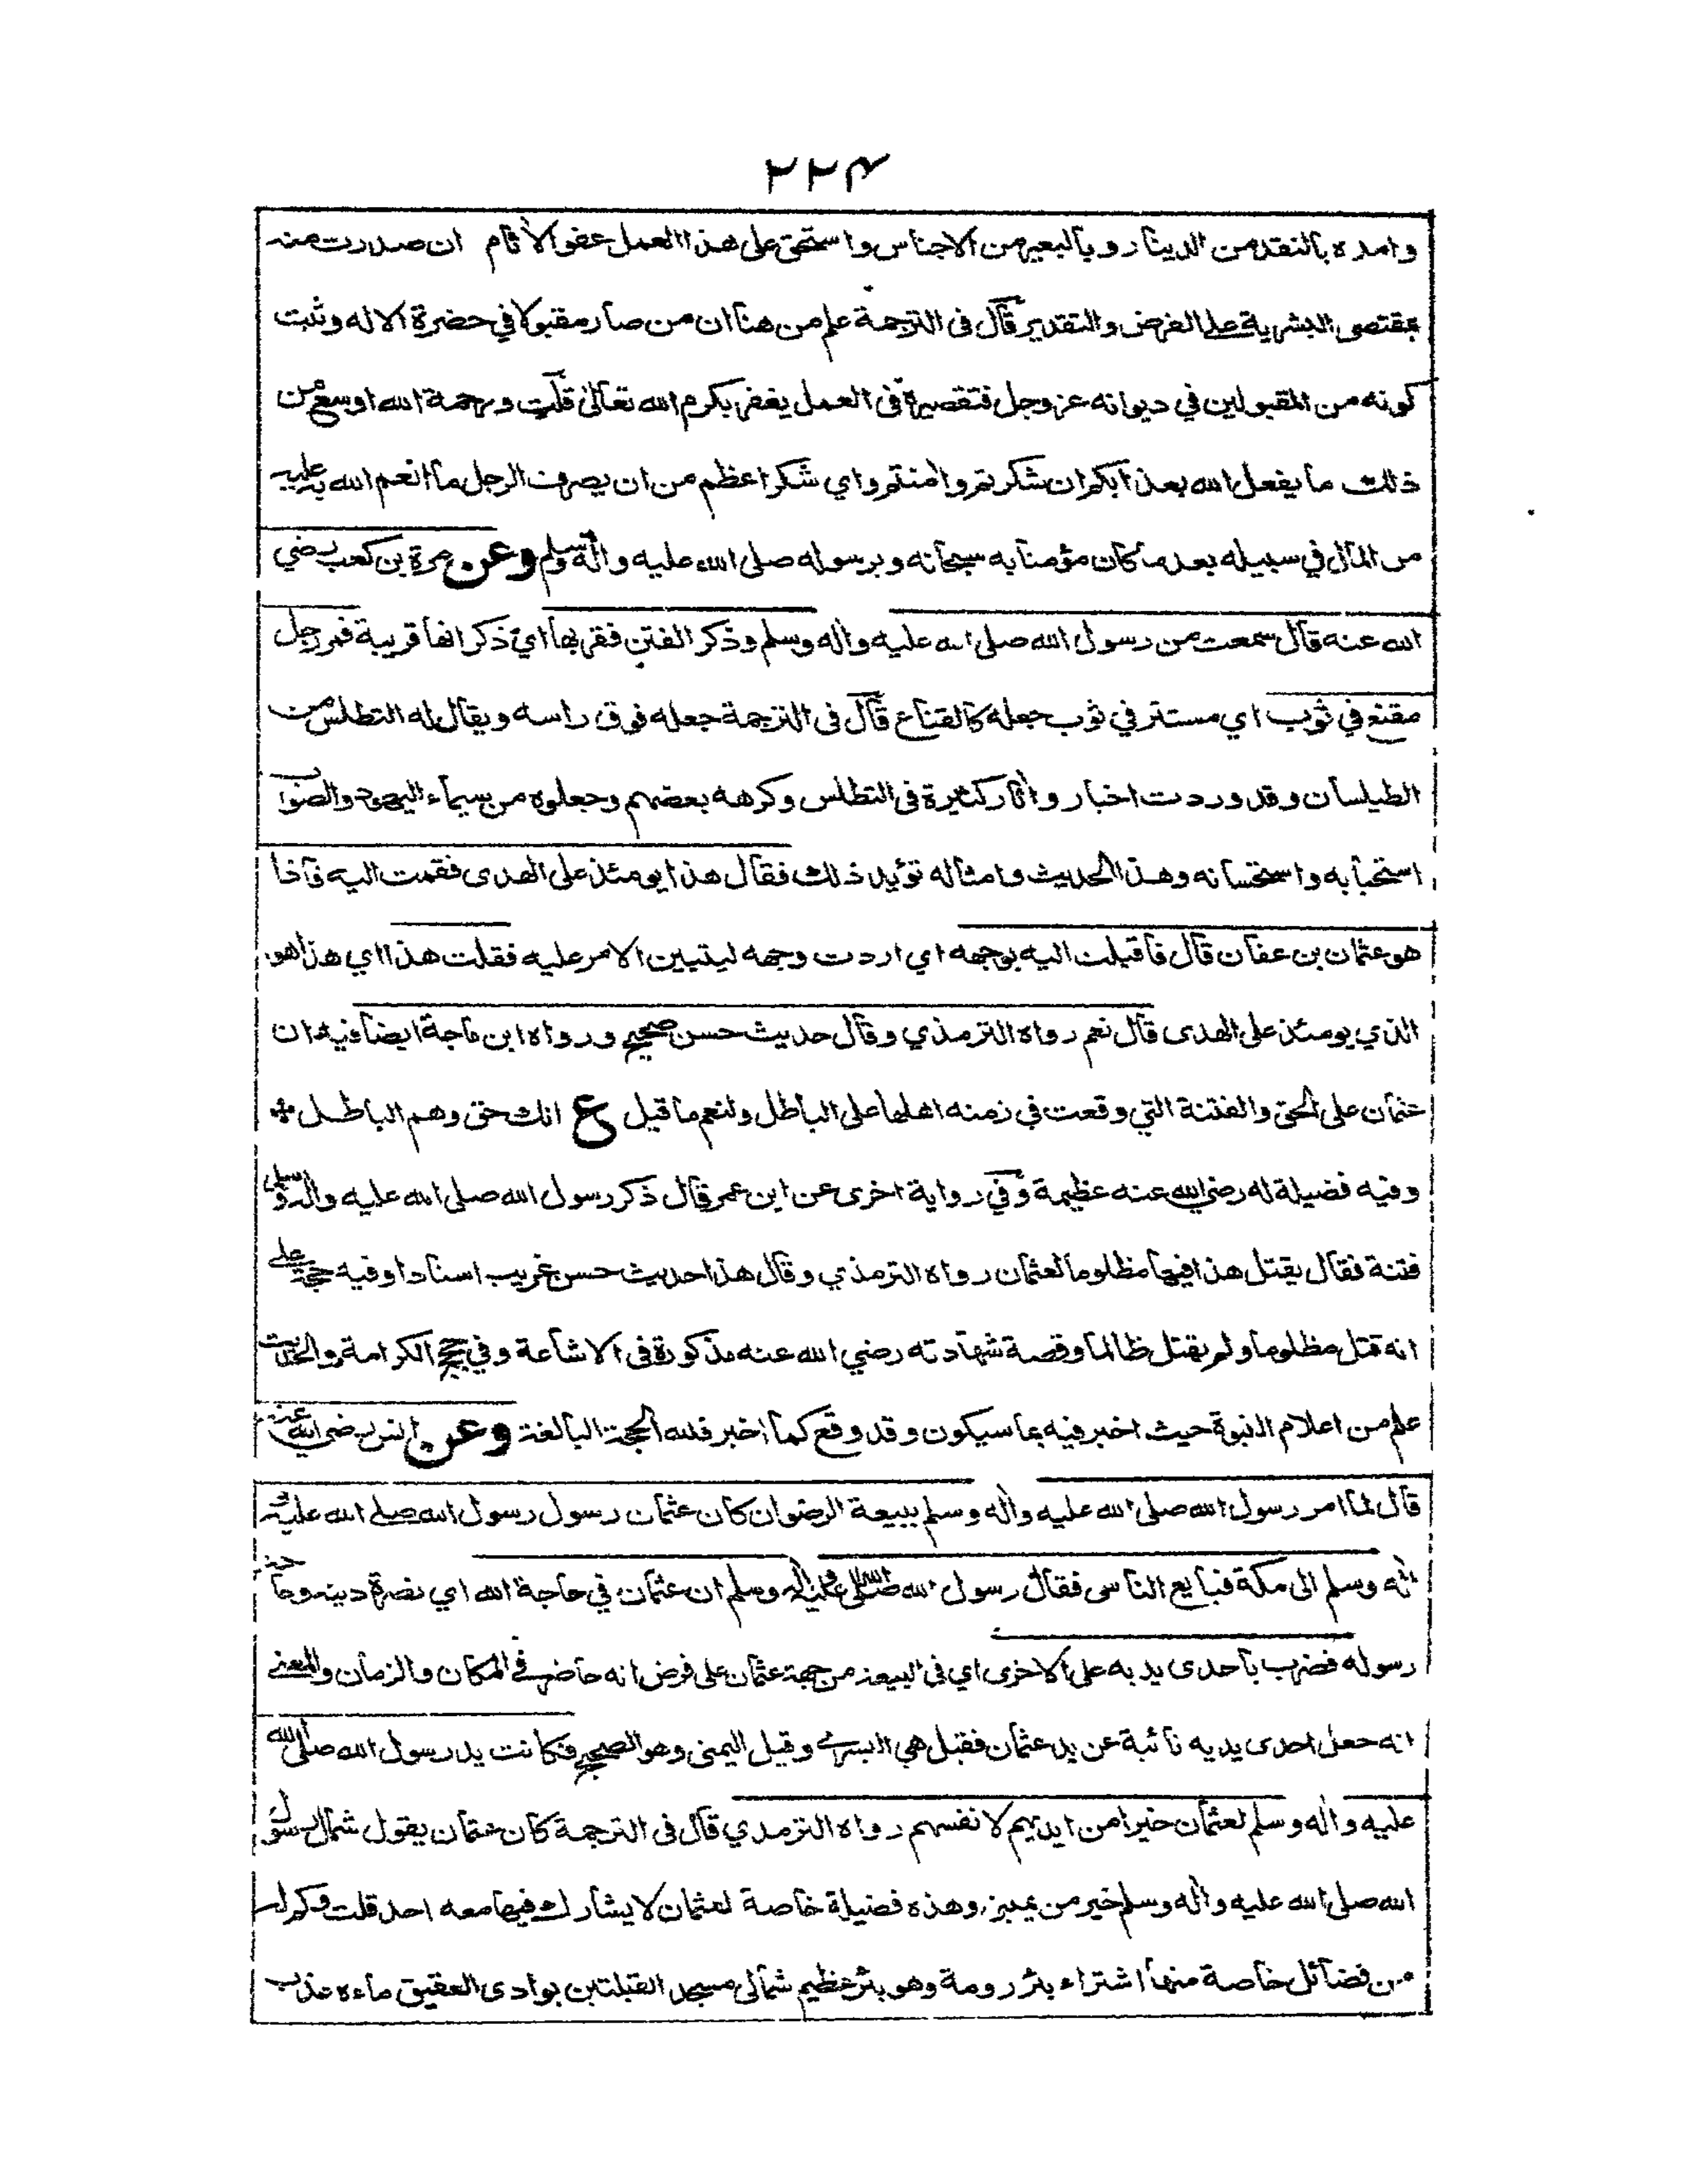 ٢٢٤
وامده بالنقد من الدينار وبالبعير من الاجناس واستحق على هذا العمل عفو الاثام ان صدرت منه
بمقتضى البشرية على الفرض والتقدير قال فى الترجمة علم من هنا ان من صار مقبولا في حضرة الاله وثبت
كونه من المقبولين في ديوانه عز وجل فتقصيره فى العمل يغفر بكرم الله تعالى قلت ورحمة الله اوسع من
ذلك ما يفعل الله بعذابكم ان شكرتم وامنتم واي شكر اعظم من ان يصرف الرجل ما انعم الله به عليه
من المال في سبيله بعد ما كان مؤمنا به سبحانه وبرسوله صلى الله عليه واله وسلم وعن مرة بن كعب رضي
الله عنه قال سمعت من رسول الله صلى الله عليه واله وسلم وذكر الفتن فقربها اي ذكر انها قريبة فمر رجل
مقنع في ثوب اي مستتر في ثوب جعله كالقناع قال فى الترجمة جعله فوق راسه ويقال له التطلس من
الطيلسان وقد وردت اخبار واثار كثيرة فى التطلس وكرهه بعضهم وجعلوه من سيماء اليهود والصواب
استحبابه واستحسانه وهذا الحديث وامثاله تؤيد ذلك فقال هذا يومئذ على الهدى فقمت اليه فاذا
هو عثمان بن عفان قال فاقبلت اليه بوجهه اي اردت وجهه ليتبين الامر عليه فقلت هذا اي هذا هو
الذي يومئذ على الهدى قال نعم رواه الترمذي وقال حديث حسن صحيح ورواه ابن ماجة ايضا فيه ان
عثمان على الحق والفتنة التي وقعت في زمنه اهلها على الباطل ولنعم ما قيل ع انك حق وهم الباطل
وفيه فضيلة له رضي الله عنه عظيمة وفي رواية اخرى عن ابن عمر قال ذكر رسول الله صلى الله عليه واله وسلم
فتنة فقال يقتل هذا فيها مظلوما لعثمان رواه الترمذي وقال هذا حديث حسن غريب اسنادا وفيه حجة على
انه قتل مظلوما ولم يقتل ظالما وقصة شهادته رضي الله عنه مذكورة فى الاشاعة وفي حجج الكرامة والحديث
علم من اعلام النبوة حيث اخبر فيه بما سيكون وقد وقع كما اخبر فلله الحجة البالغة وعن انس رضي الله عنه
قال لما امر رسول الله صلى الله عليه واله وسلم ببيعة الرضوان كان عثمان رسول رسول الله صلى الله عليه و
اله وسلم الى مكة فبايع الناس فقال رسول الله صلى الله عليه واله وسلم ان عثمان في حاجة الله اي نصرة دينه وحاجة
رسوله فضرب باحدى يديه على الاخرى اي فى البيعة من جهة عثمان على فرض انه حاضر في المكان والزمان والمعنى
انه جعل احدى يديه نائبة عن يد عثمان فقيل هي اليسرى وقيل اليمنى وهو الصحيح فكانت يد رسول الله صلى الله
عليه واله وسلم لعثمان خيرا من ايديهم لانفسهم رواه الترمذي قال فى الترجمة كان عثمان يقول شمال رسول
الله صلى الله عليه واله وسلم خير من يميني وهذه فضيلة خاصة لعثمان لا يشارك فيها معه احد قلت وكم له
من فضائل خاصة منها اشتراء بئر رومة وهو بئر عظيم شمالى مسجد القبلتين بوادى العقيق ماءه عذب